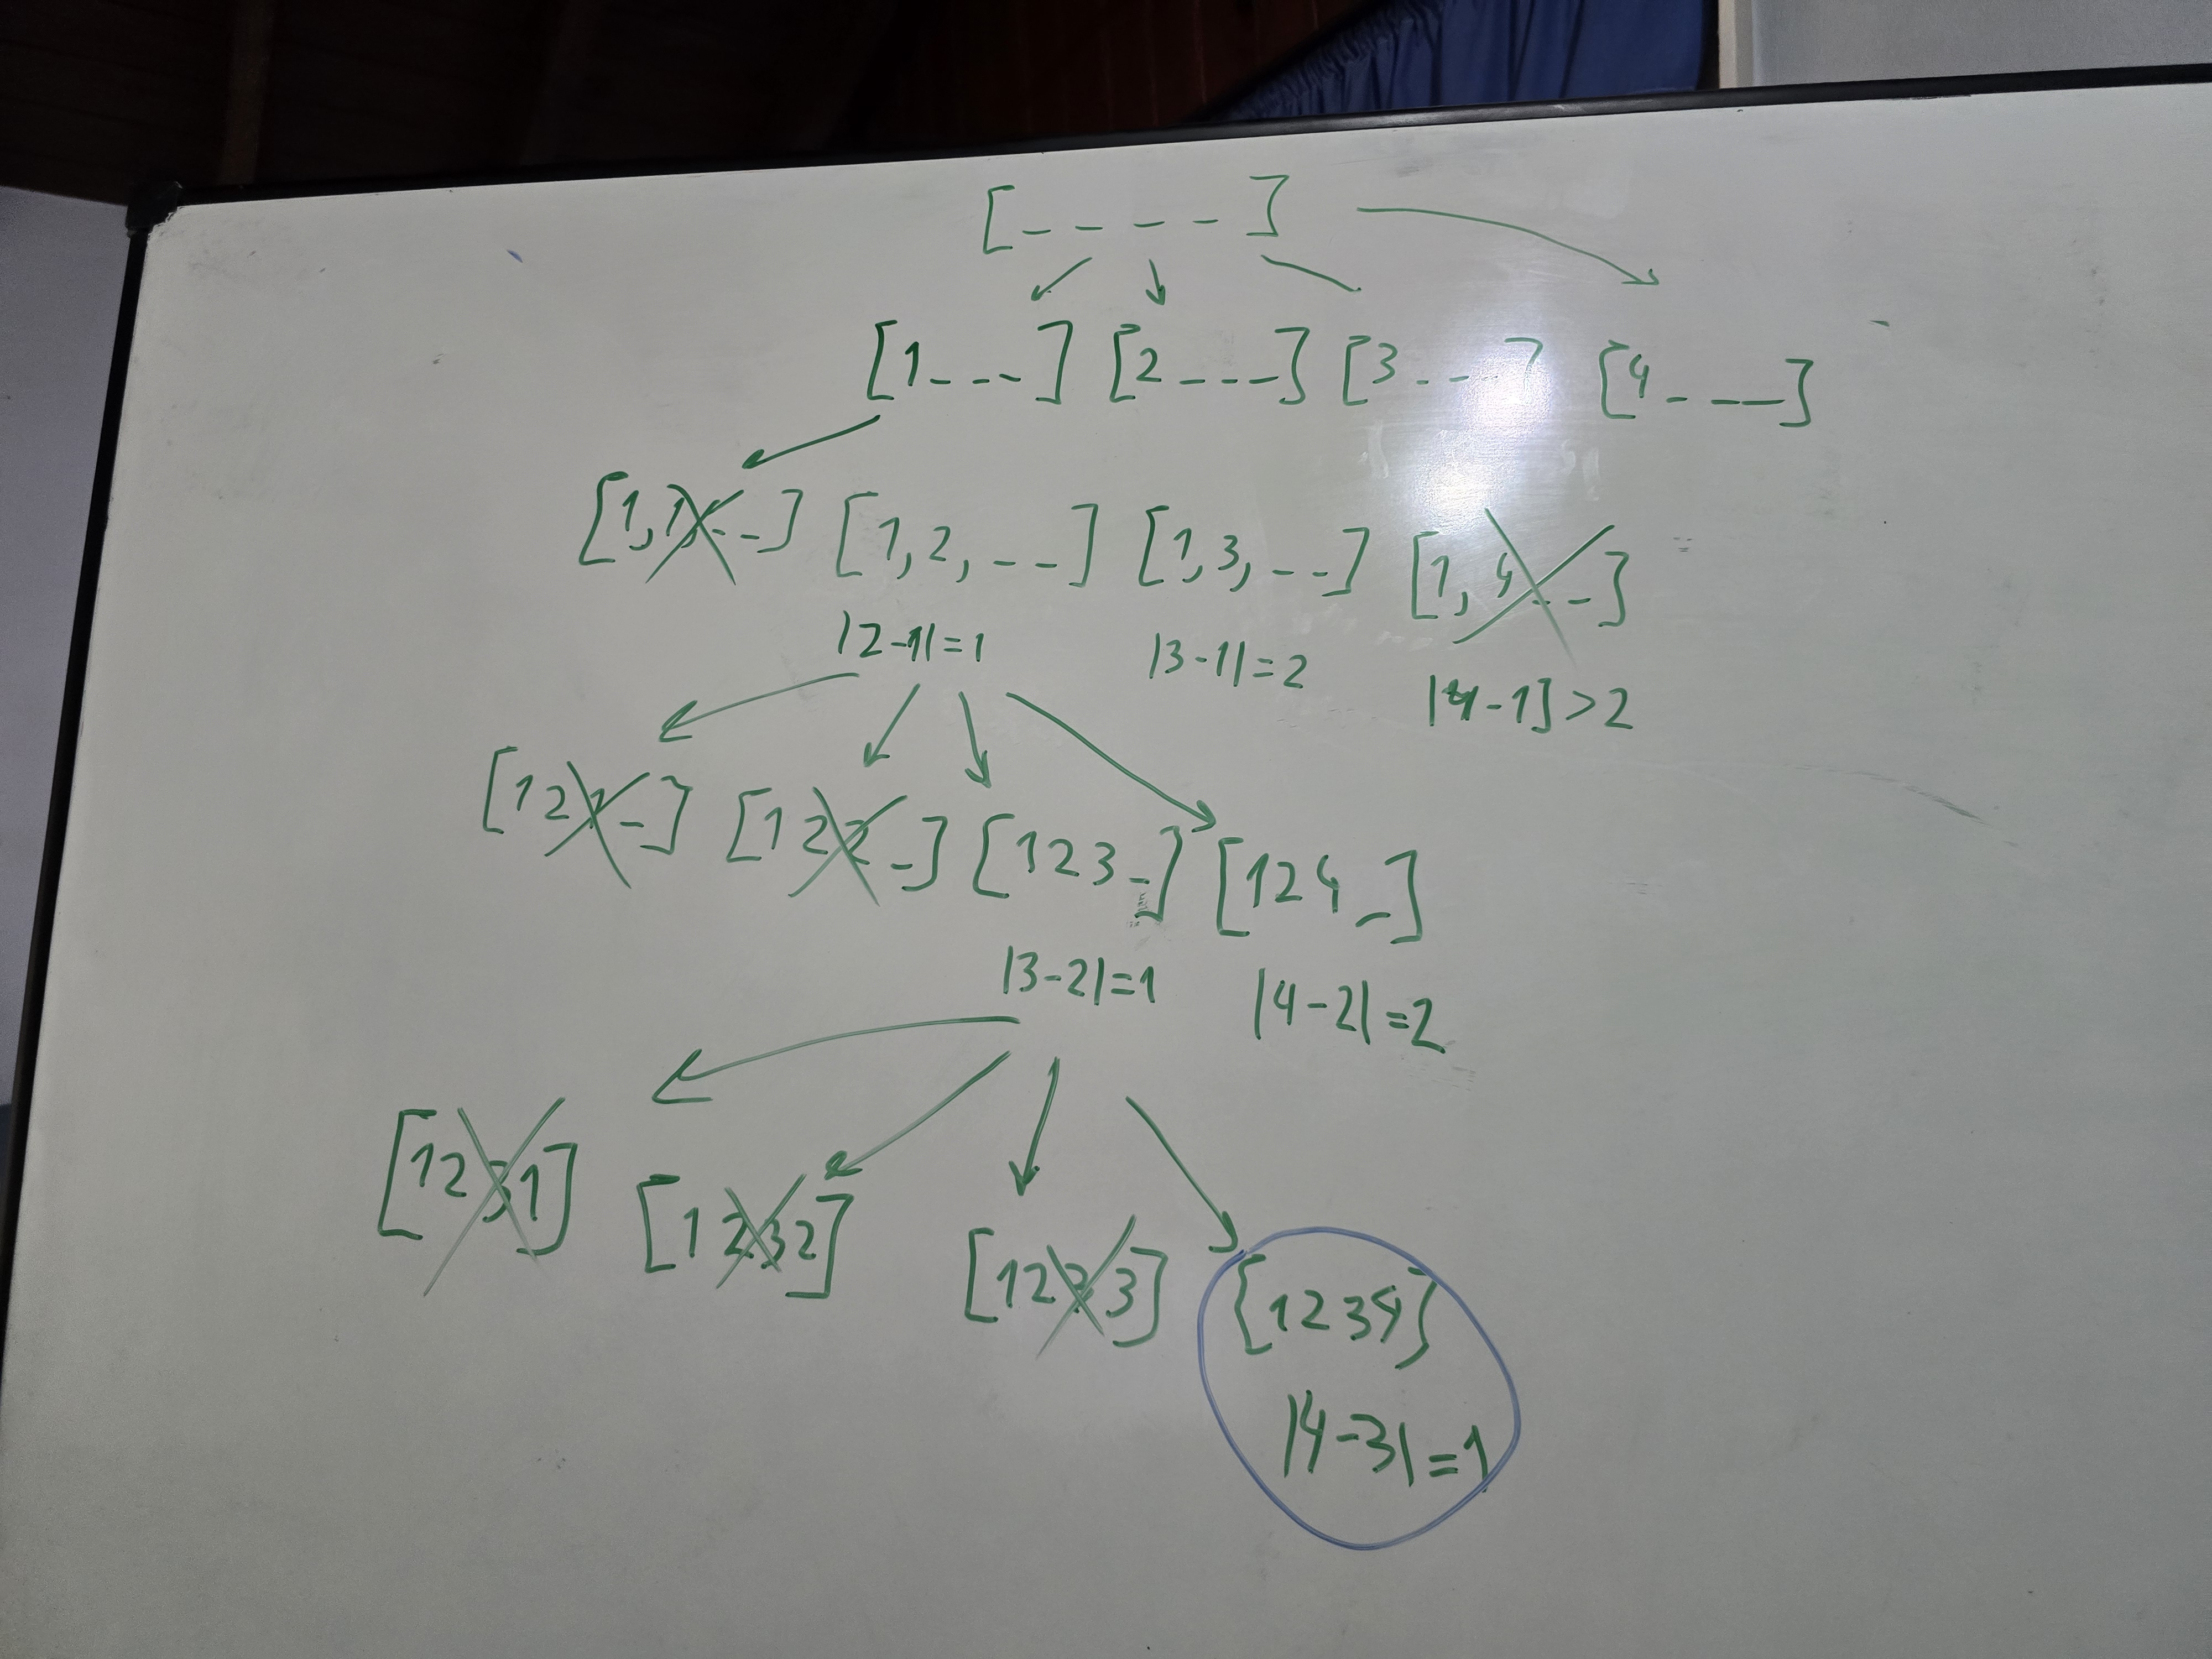 [_ _ _ _]
[1 _ _ _] [2 _ _ _] [3 _ _ _] [4 _ _ _]
[1, 1, _ _] [1, 2, _ _] [1, 3, _ _] [1, 4 _ _]
|2-1|=1 |3-1|=2 |4-1]>2
[1 2 1 _] [1 2 2 _] [1 2 3 _] [1 2 4 _]
|3-2|=1 |4-2|=2
[1 2 3 1] [1 2 3 2] [1 2 3 3] [1 2 3 4]
|4-3|=1